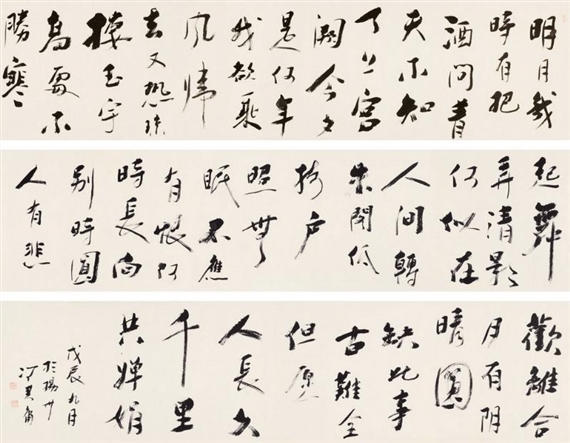 明月幾
時有把
酒問青
天不知
天上宮
闕今夕
是何年
我欲乘
風歸
去又恐瓊
樓玉宇
高處不
勝寒
起舞
弄清影
何似在
人間轉
朱閣低
綺户
照無
眠不應
有恨何
時長向
别時圓
人有悲
歡離合
月有陰
晴圓
缺此事
古難全
但願
人長久
千里
共嬋娟
戊辰九月
於揚州
馮其庸